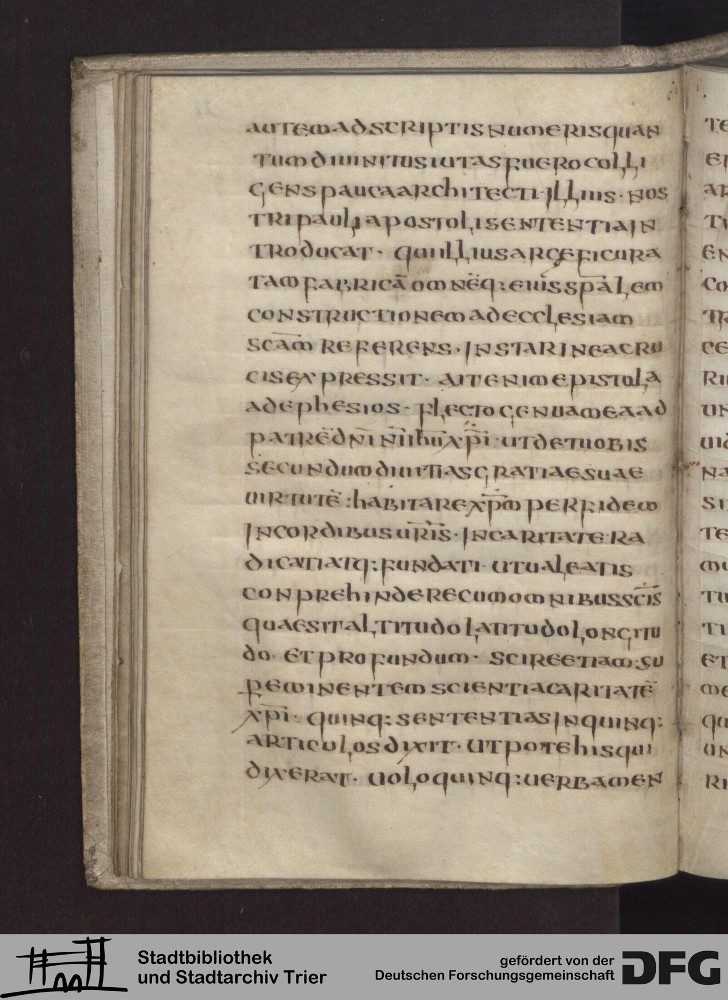 autem adscriptis numeris quan
tum divinitus iutas fuero colli
gens pauca architecti illius · nos
tri pauli apostoli sententia in
troducat · qui illius arcę ficura
tam fabricā omnēq: eius spālem
constructionem ad ecclesiam
scām referens · instar ineacru
cis expressit · ait enim epistola
ad ephesios · flecto genua mea ad
patrē dnī nīi ihū xpī · ut det uobis
secundum divitias gratiae suae
uirtutē : habitare xpm per fidem
in cordibus urīs · in caritate ra
dicati atq: fundati · ut ualeatis
conprehindere cum omnibus scīs
quae sit altitudo latitudo longitu
do · et profundum · scire etiam su
pereminentem scientia caritatē
xpī · quinq: sententias in quinq:
articulos dixit · ut pote his qui
dixerat · uolo quinq: uerba men
Stadtbibliothek
und Stadtarchiv Trier
gefördert von der
Deutschen Forschungsgemeinschaft
DFG